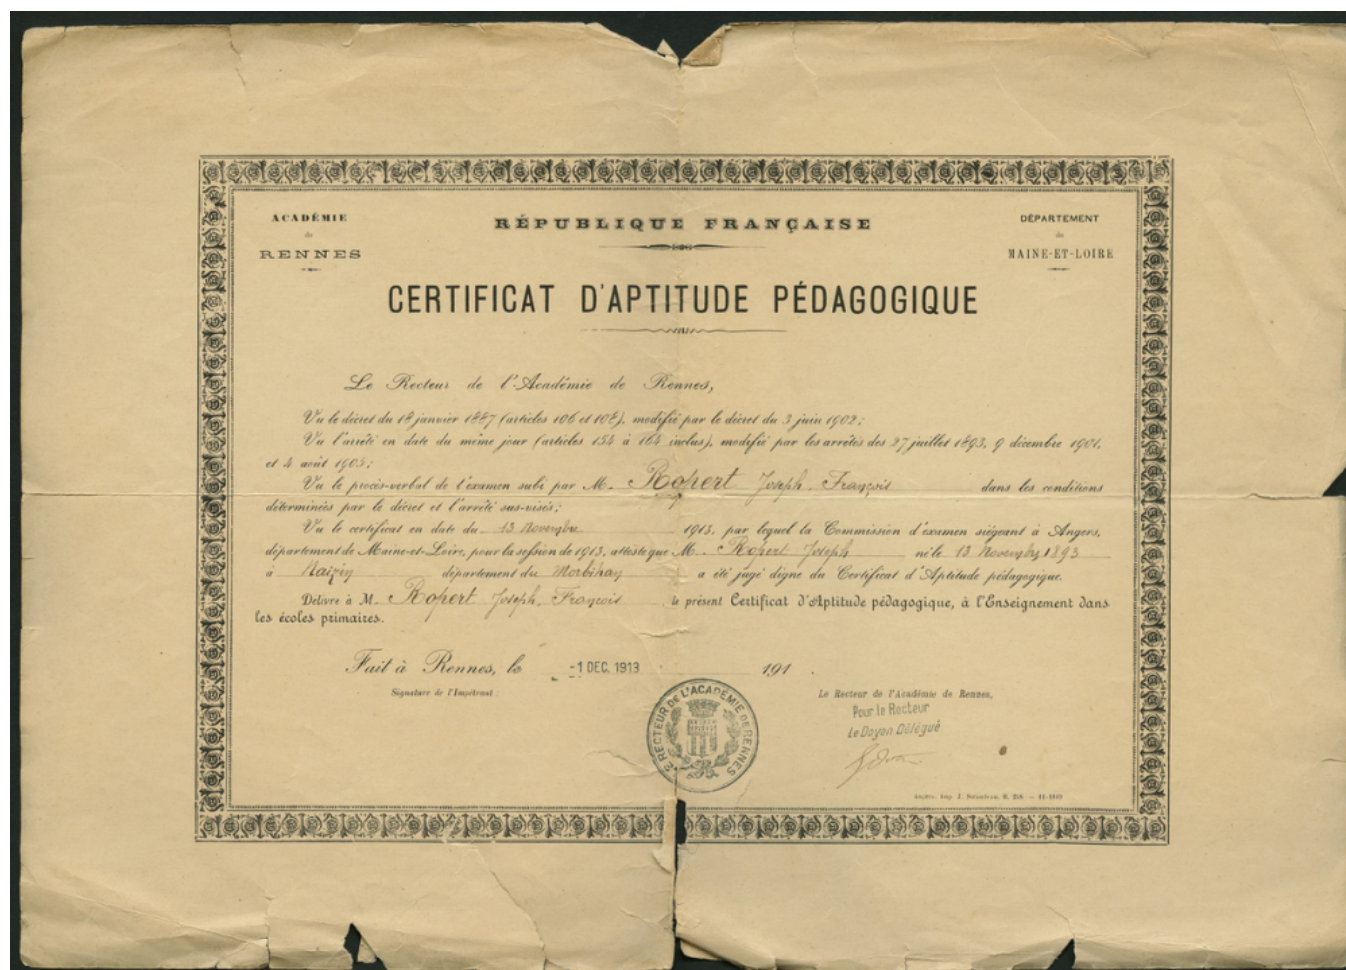 ACADÉMIE
de
RENNES
RÉPUBLIQUE FRANÇAISE
DÉPARTEMENT
de
MAINE-ET-LOIRE
CERTIFICAT D'APTITUDE PÉDAGOGIQUE
Le Recteur de l'Académie de Rennes,
Vu le décret du 18 janvier 1887 (articles 106 et 108), modifié par le décret du 3 juin 1902;
Vu l'arrêté en date du même jour (articles 154 à 164 inclus), modifié par les arrêtés des 27 juillet 1893, 9 décembre 1901,
et 4 août 1905;
Vu le procès-verbal de l'examen subi par M. Ropert Joseph. François dans les conditions
déterminées par le décret et l'arrêté sus-visés;
Vu le certificat en date du 13 Novembre 1913, par lequel la Commission d'examen siégeant à Angers,
département de Maine-et-Loire, pour la session de 1913, atteste que M. Ropert Joseph né le 13 Novembre 1893
à Naizin département du Morbihan a été jugé digne du Certificat d'Aptitude pédagogique.
Délivre à M. Ropert Joseph. François, le présent Certificat d'Aptitude pédagogique, à l'Enseignement dans
les écoles primaires.
Fait à Rennes, le -1 DEC. 1913 191 .
Signature de l'Impétrant :
LE RECTEUR DE L'ACADÉMIE DE RENNES
Le Recteur de l'Académie de Rennes,
Pour le Recteur
Le Doyen Délégué
Imp. J.